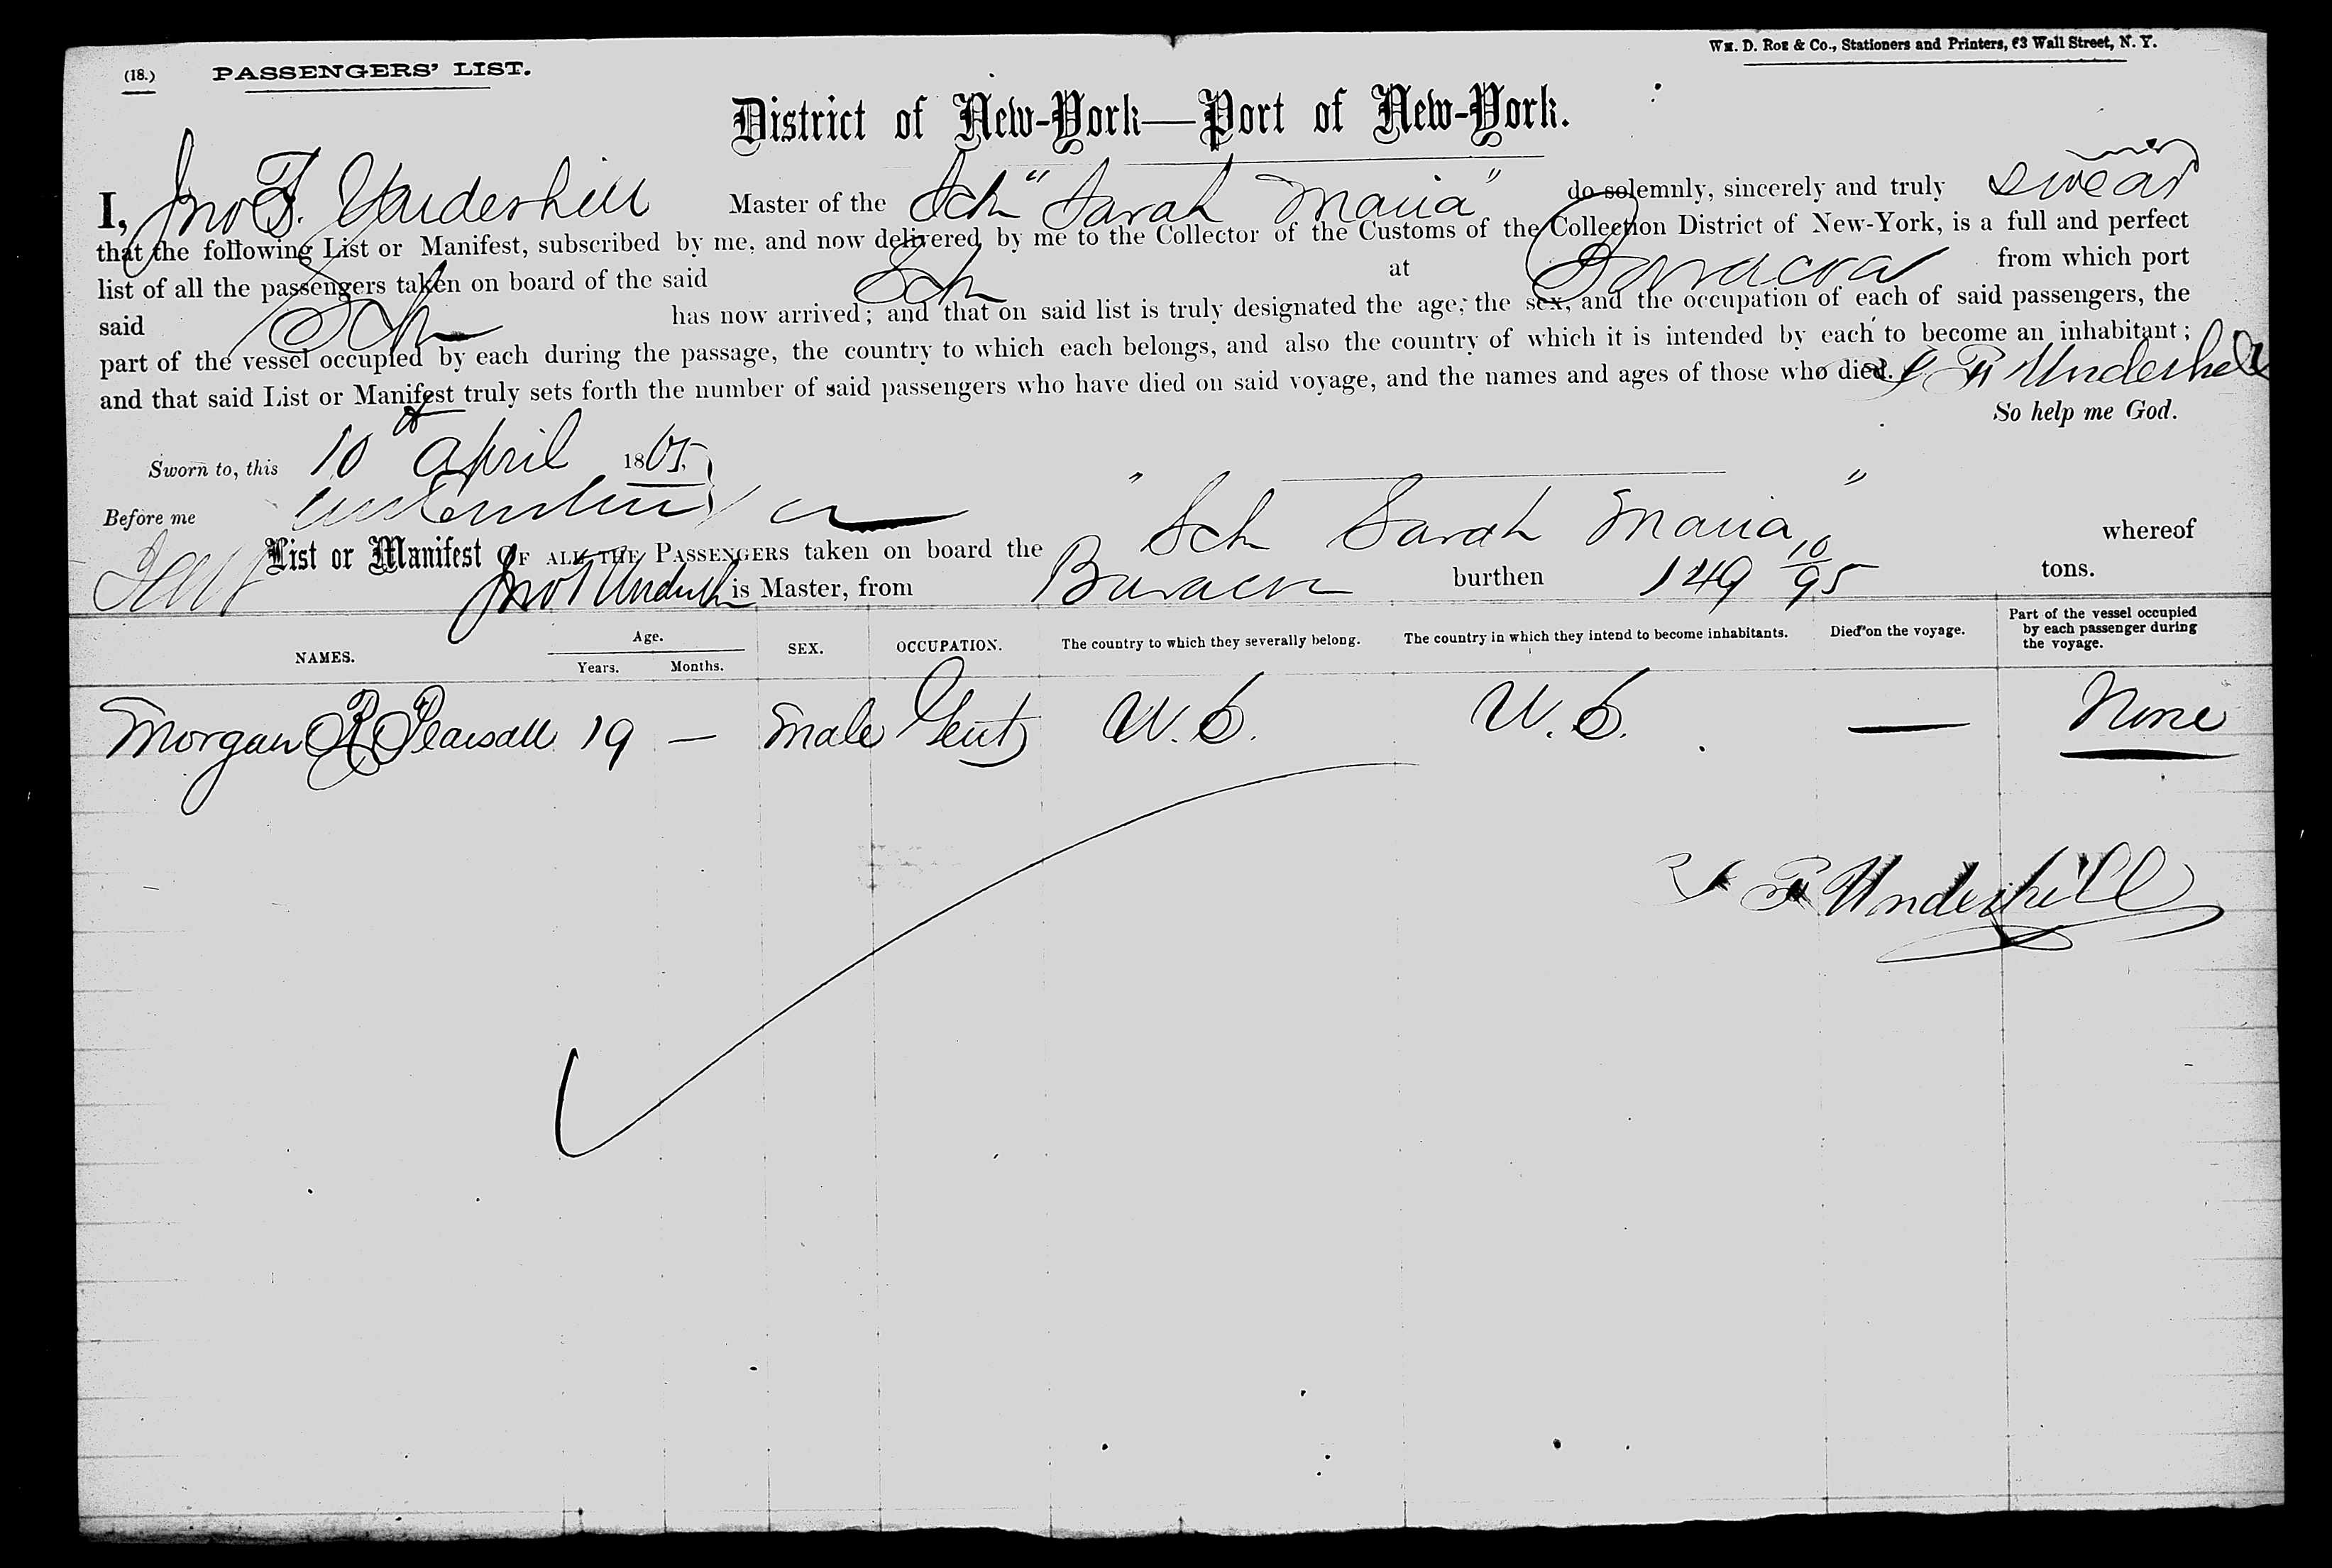 (18.) PASSENGERS' LIST.
Wm. D. Roe & Co., Stationers and Printers, 63 Wall Street, N. Y.
District of New-York—Port of New-York.
I, Jno T. Underhill Master of the Sch "Sarah Maria" do solemnly, sincerely and truly swear
that the following List or Manifest, subscribed by me, and now delivered by me to the Collector of the Customs of the Collection District of New-York, is a full and perfect
list of all the passengers taken on board of the said Sch at from which port
said Sch has now arrived; and that on said list is truly designated the age, the sex, and the occupation of each of said passengers, the
part of the vessel occupied by each during the passage, the country to which each belongs, and also the country of which it is intended by each to become an inhabitant;
and that said List or Manifest truly sets forth the number of said passengers who have died on said voyage, and the names and ages of those who died. J T Underhill
So help me God.
Sworn to, this 10 April 1865
Before me
List or Manifest OF ALL THE PASSENGERS taken on board the "Sch Sarah Maria" whereof
Jno T Underhill is Master, from burthen 149 10/95 tons.
NAMES. Age. Years. Months. SEX. OCCUPATION. The country to which they severally belong. The country in which they intend to become inhabitants. Died on the voyage. Part of the vessel occupied by each passenger during the voyage.
Morgan R Pearsall 19 — Male Gent U.S. U.S. — None
J T Underhill